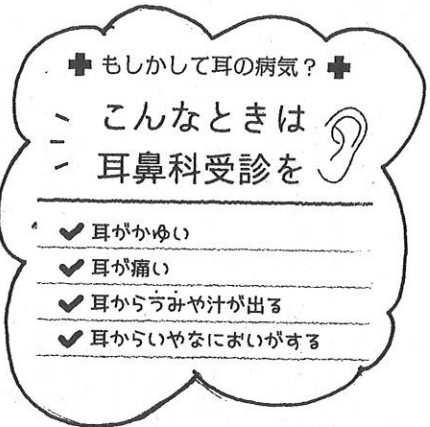 ✚ もしかして耳の病気？ ✚
こんなときは
耳鼻科受診を
✔ 耳がかゆい
✔ 耳が痛い
✔ 耳からうみや汁が出る
✔ 耳からいやなにおいがする